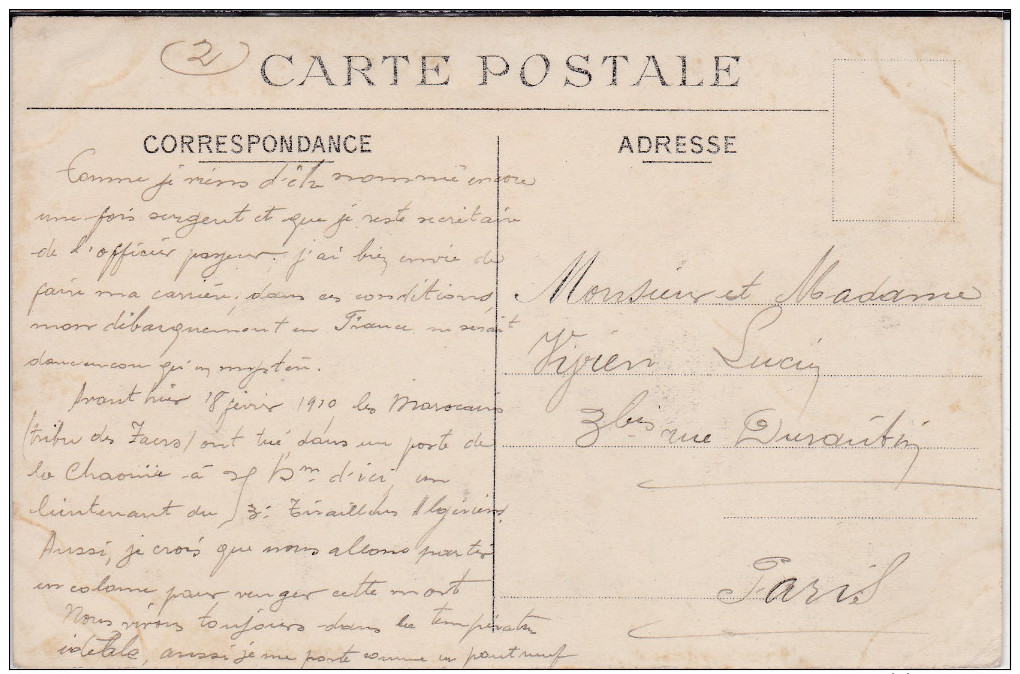 2
CARTE POSTALE
CORRESPONDANCE
ADRESSE
Comme je viens d'être nommé encore
une fois sergent et que je reste secrétaire
de l'officier payeur. j'ai bien envie de
faire ma carrière; dans ces conditions,
mon débarquement en France me serait
qu'un mystère.
Avant hier 18 février 1910 les Marocains
(tribu des Zaers) ont tué, dans un poste de
la Chaouïe à d'ici, un
lieutenant du 3e Tirailleurs Algériens.
Aussi, je crois que nous allons partir
en colonne pour venger cette mort
Nous vivons toujours dans une température
idéale, aussi je me porte comme un pont neuf
Monsieur et Madame
Lucien
3bis rue Durantin
Paris